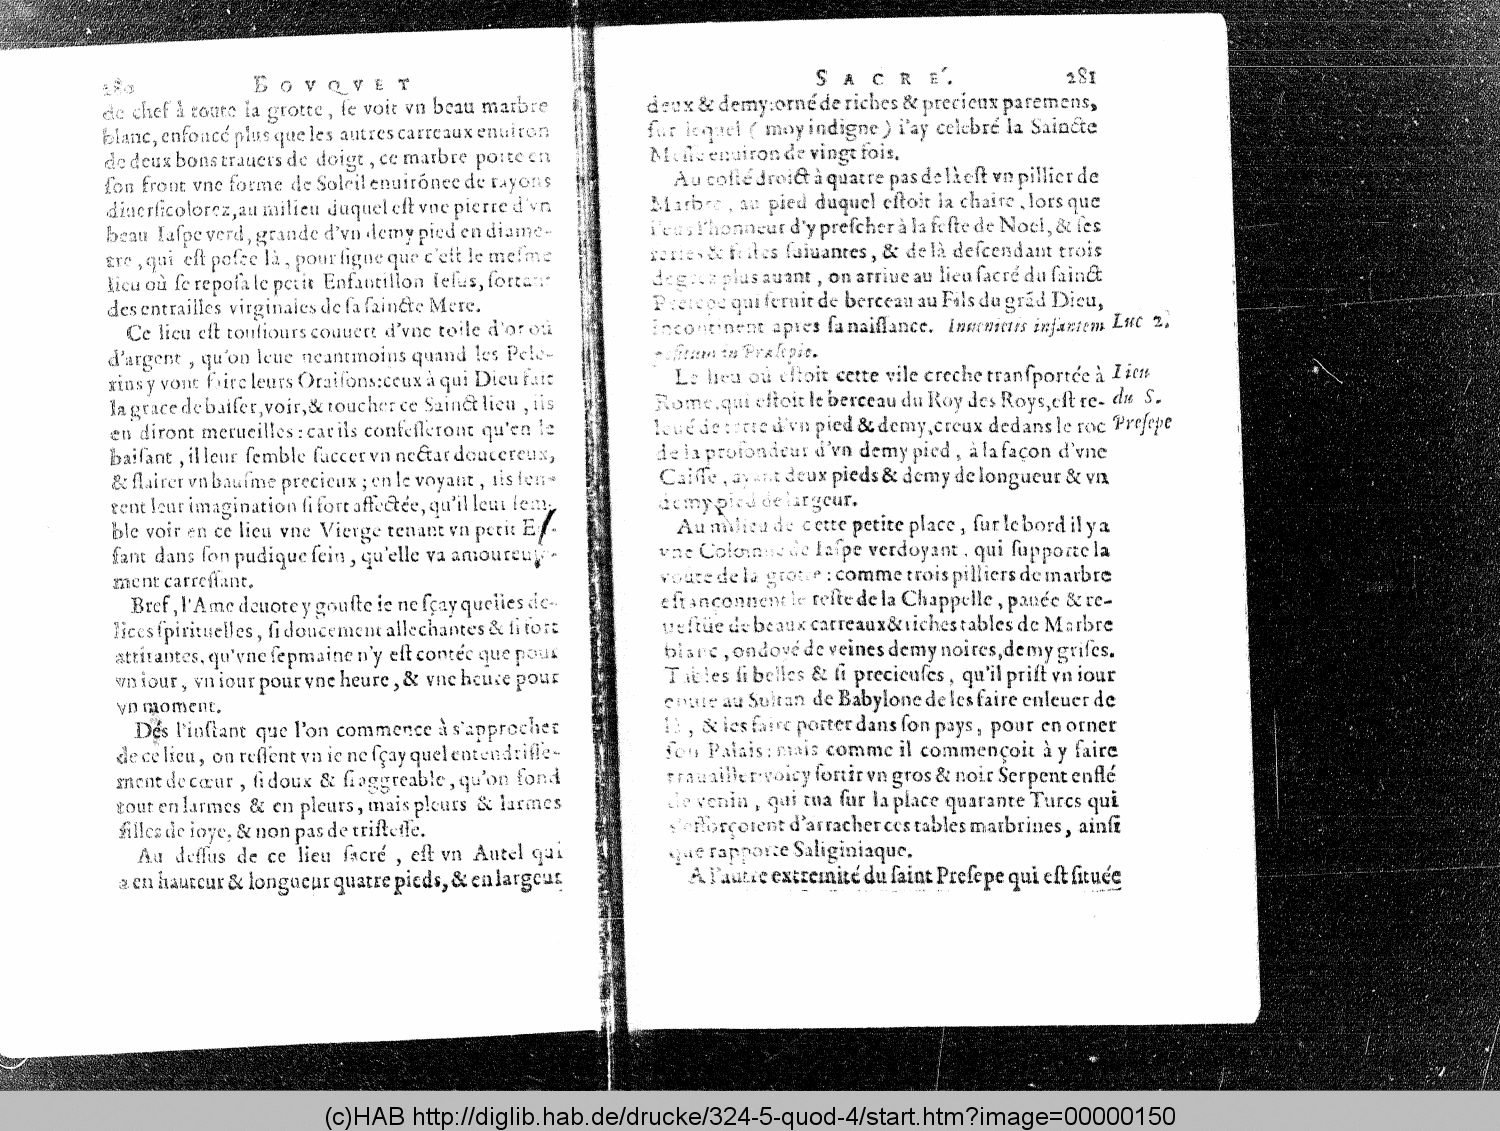 280 BOVQVET
de chef à toute la grotte, se voit vn beau marbre
blanc, enfoncé plus que les autres carreaux enuiron
de deux bons trauers de doigt, ce marbre porte en
son front vne forme de Soleil enuirõnee de rayons
diuersicolorez, au milieu duquel est vne pierre d'vn
beau Iaspe verd, grande d'vn demy pied en diame-
tre, qui est posee là, pour signe que c'est le mesme
lieu où se reposa le petit Enfantillon Iesus, sortant
des entrailles virginales de sa saincte Mere.
Ce lieu est tousiours couuert d'vne toile d'or ou
d'argent, qu'on leue neantmoins quand les Pele-
rins y vont faire leurs Oraisons: ceux à qui Dieu fait
la grace de baiser, voir, & toucher ce Sainct lieu, ils
en diront merueilles: car ils confesseront qu'en le
baisant, il leur semble succer vn nectar doucereux,
& flairer vn bausme precieux; en le voyant, ils sen-
tent leur imagination si fort affectée, qu'il leur sem-
ble voir en ce lieu vne Vierge tenant vn petit En-
fant dans son pudique sein, qu'elle va amoureuse-
ment carressant.
Bref, l'Ame deuote y gouste ie ne sçay quelles de-
lices spirituelles, si doucement allechantes & si fort
attirantes, qu'vne sepmaine n'y est contée que pour
vn iour, vn iour pour vne heure, & vne heure pour
vn moment.
Dés l'instant que l'on commence à s'approcher
de ce lieu, on ressent vn ie ne sçay quel entendrisse-
ment de cœur, si doux & si aggreable, qu'on fond
tout en larmes & en pleurs, mais pleurs & larmes
filles de ioye, & non pas de tristesse.
Au dessus de ce lieu sacré, est vn Autel qui
a en hauteur & longueur quatre pieds, & en largeur
SACRÉ. 281
deux & demy: orné de riches & precieux paremens,
sur lequel (moy indigne) i'ay celebré la Saincte
Messe enuiron de vingt fois.
Au costé droict à quatre pas de là est vn pillier de
Marbre, au pied duquel estoit la chaire, lors que
i'eus l'honneur d'y prescher à la feste de Noel, & les
festes suiuantes, & de là descendant trois
degrez plus auant, on arriue au lieu sacré du sainct
Presepe qui seruit de berceau au Fils du grãd Dieu,
incontinent apres sa naissance. Inuenietis infantem Luc 2.
positum in Præsepio.
Le lieu où estoit cette vile creche transportée à Lieu
Rome, qui estoit le berceau du Roy des Roys, est re- du S.
leué de terre d'vn pied & demy, creux dedans le roc Presepe
de la profondeur d'vn demy pied, à la façon d'vne
Caisse, ayant deux pieds & demy de longueur & vn
demy pied de largeur.
Au milieu de cette petite place, sur le bord il y a
vne Colomne de Iaspe verdoyant, qui supporte la
voute de la grotte: comme trois pilliers de marbre
estançonnent le reste de la Chappelle, pauée & re-
uestüe de beaux carreaux & riches tables de Marbre
blanc, ondoyé de veines demy noires, demy grises.
Tables si belles & si precieuses, qu'il prist vn iour
enuie au Sultan de Babylone de les faire enleuer de
là, & les faire porter dans son pays, pour en orner
son Palais: mais comme il commençoit à y faire
trauailler voicy sortir vn gros & noir Serpent enflé
de venin, qui tua sur la place quarante Turcs qui
s'efforçoient d'arracher ces tables marbrines, ainsi
que rapporte Saliginiaque.
A l'autre extremité du saint Presepe qui est située
(c)HAB http://diglib.hab.de/drucke/324-5-quod-4/start.htm?image=00000150